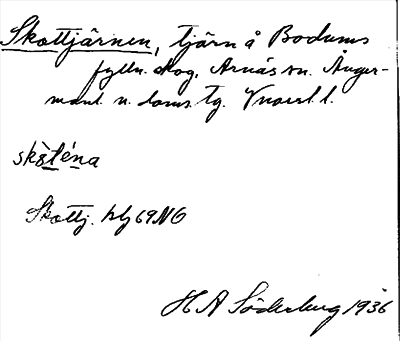 Skottjärnen, tjärn å Bodums
fylln. skog, Arnäs sn. Ånger-
manl. n. doms. tg. Vnorrl. l.
Skottj. blj 69 NO
H A Söderberg 1936